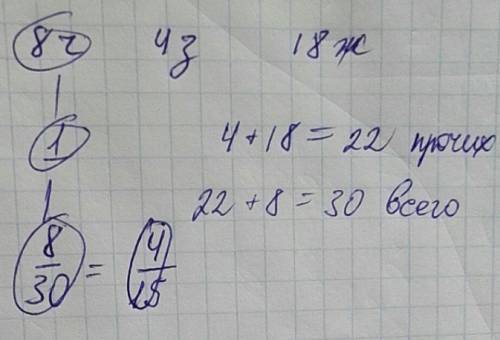 8ч 4з 18ж
1 4 + 18 = 22 прочих
22 + 8 = 30 всего
8/30 = 4/15